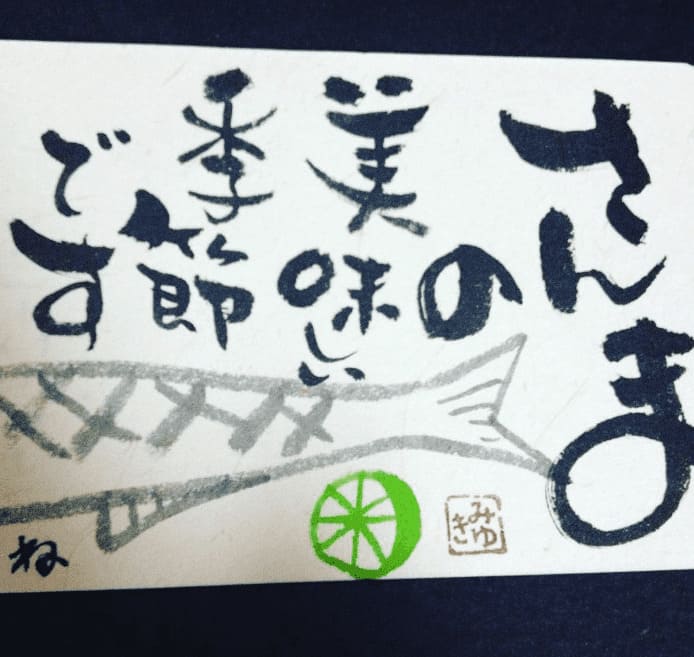 さんま
の
美味しい
季節
です
ね
みゆき